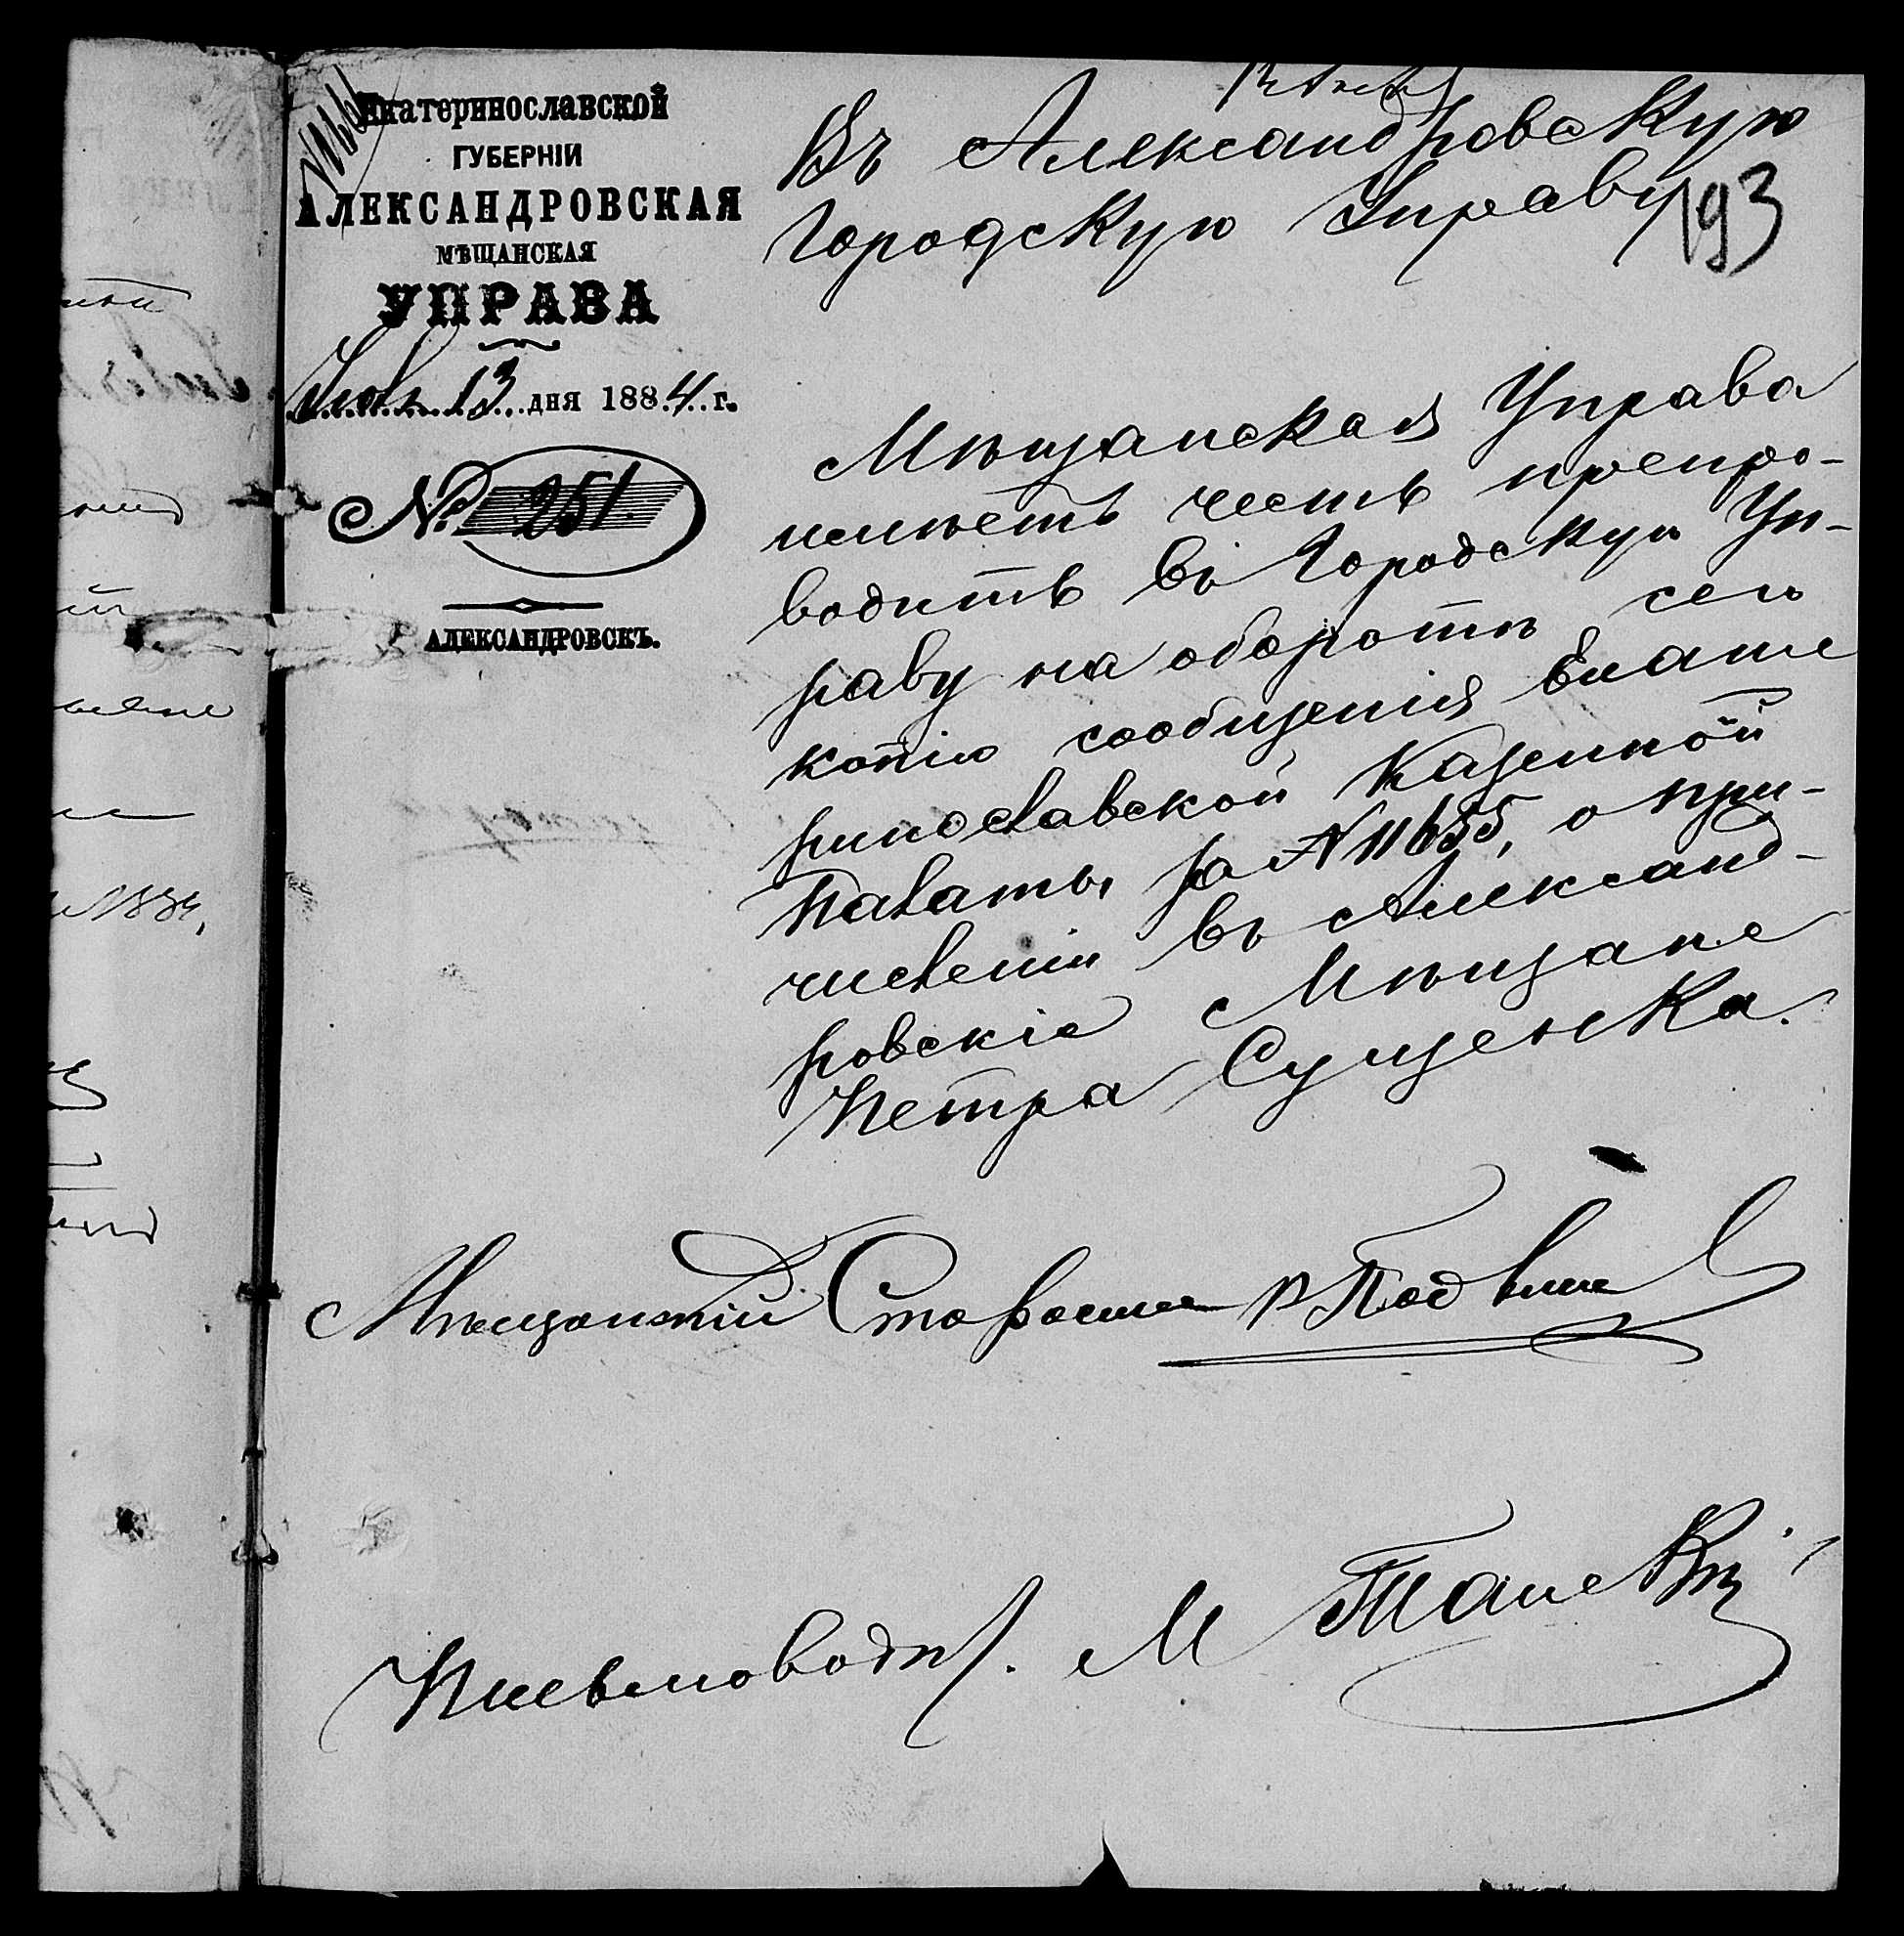 Екатеринославской
ГУБЕРНІИ
АЛЕКСАНДРОВСКАЯ
МѢЩАНСКАЯ
УПРАВА
13 дня 1884 г.
№ 251.
АЛЕКСАНДРОВСКЪ.
Въ Александровскую
Городскую Управу
193
Мѣщанская Управа
имѣетъ честь препро-
водить въ Городскую Уп-
раву на оборотѣ сего
копію сообщенія Екате
ринославской Казенной
Палаты за № 11655, о при-
численіи въ Александ-
ровскіе Мѣщане
Петра Сущенка.
Мѣщанскій Староста
Письмоводит. М